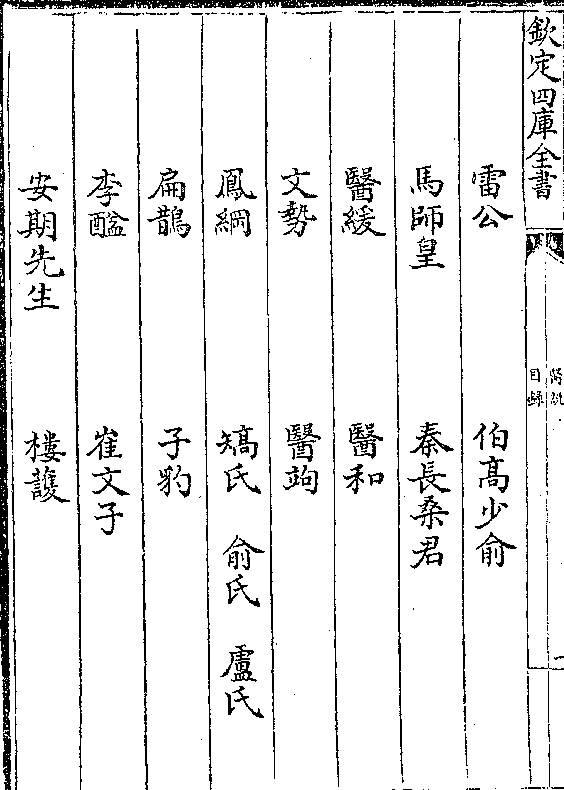 欽定四庫全書
醫說
目錄
雷公 伯髙少俞
馬師皇 秦長桑君
醫緩 醫和
文勢 醫竘
鳳綱 矯氏 俞氏 盧氏
扁鵲 子豹
李醯 崔文子
安期先生 樓護